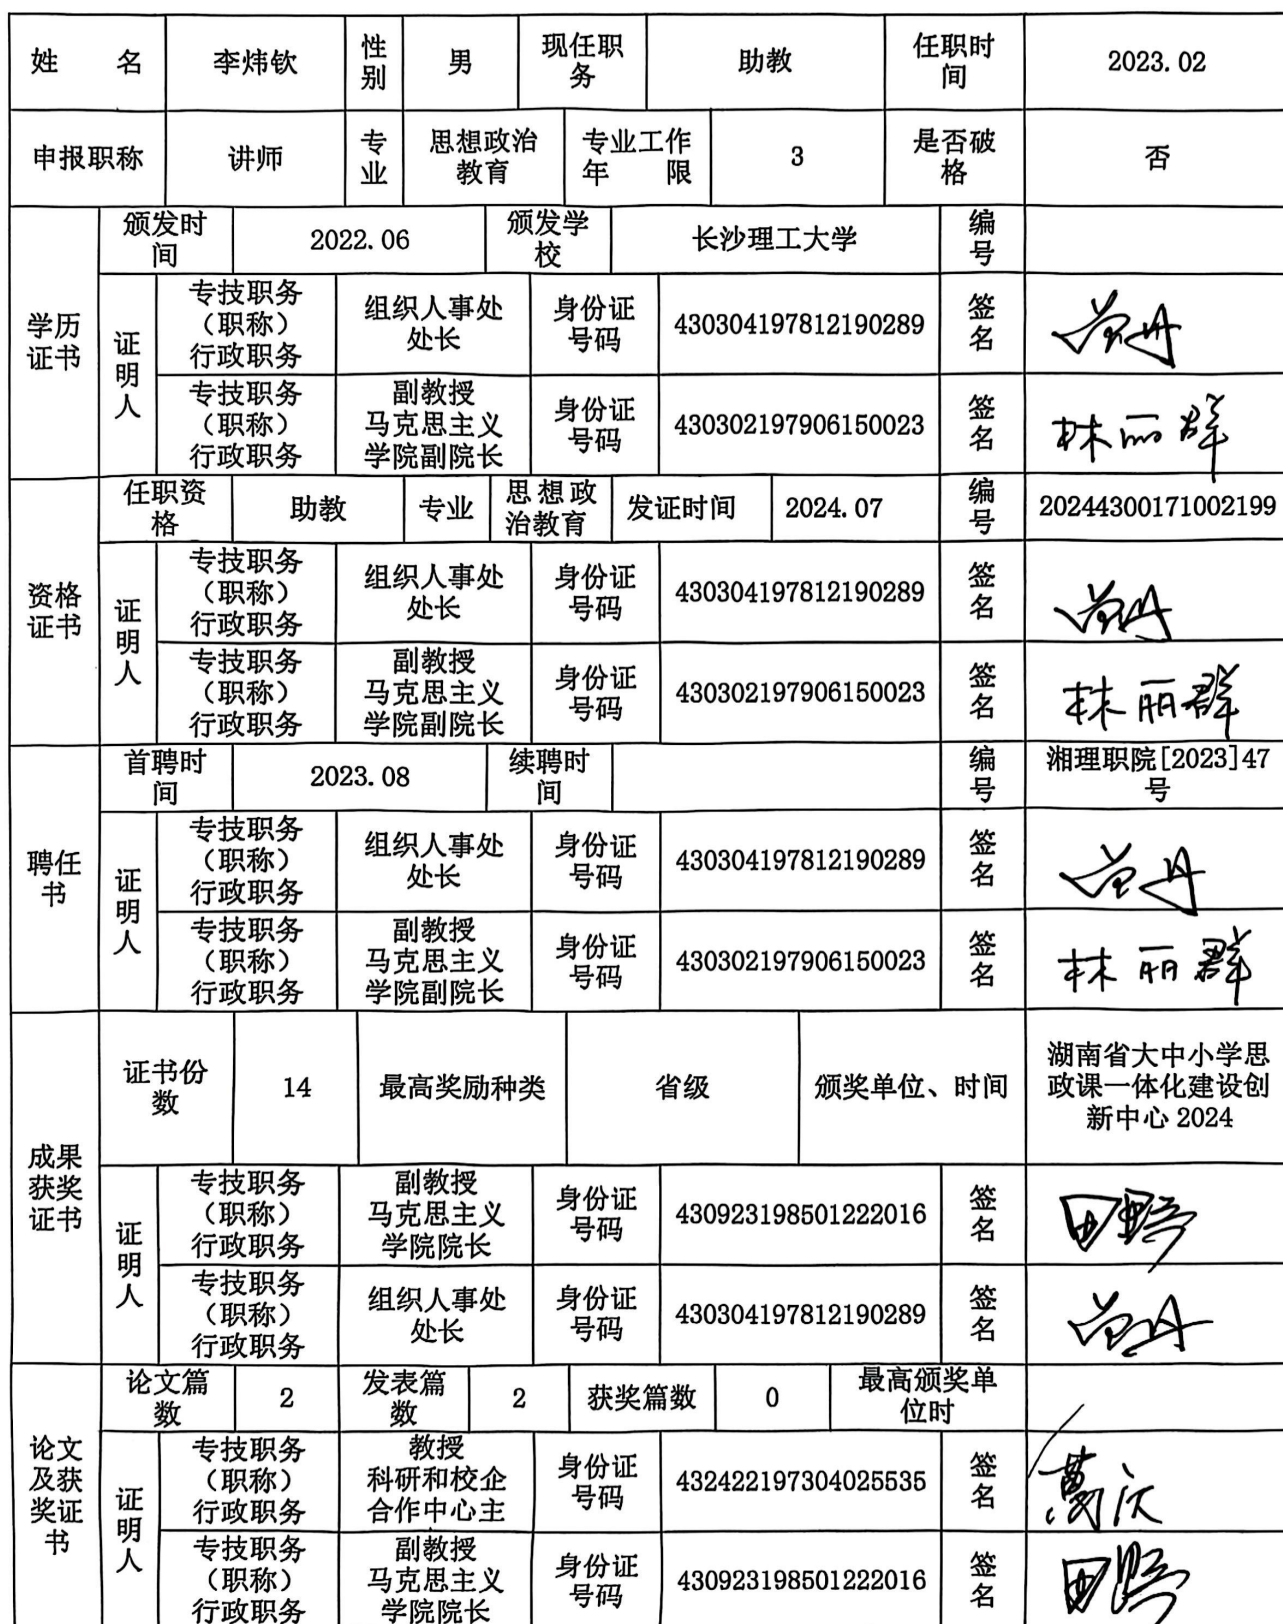 姓 名 李炜钦 性别 男 现任职务 助教 任职时间 2023.02
申报职称 讲师 专业 思想政治教育 专业工作年限 3 是否破格 否
学历证书 颁发时间 2022.06 颁发学校 长沙理工大学 编号
证明人 专技职务（职称）行政职务 组织人事处处长 身份证号码 430304197812190289 签名
专技职务（职称）行政职务 副教授马克思主义学院副院长 身份证号码 430302197906150023 签名 林丽群
资格证书 任职资格 助教 专业 思想政治教育 发证时间 2024.07 编号 20244300171002199
证明人 专技职务（职称）行政职务 组织人事处处长 身份证号码 430304197812190289 签名
专技职务（职称）行政职务 副教授马克思主义学院副院长 身份证号码 430302197906150023 签名 林丽群
聘任书 首聘时间 2023.08 续聘时间 编号 湘理职院[2023]47号
证明人 专技职务（职称）行政职务 组织人事处处长 身份证号码 430304197812190289 签名
专技职务（职称）行政职务 副教授马克思主义学院副院长 身份证号码 430302197906150023 签名 林丽群
成果获奖证书 证书份数 14 最高奖励种类 省级 颁奖单位、时间 湖南省大中小学思政课一体化建设创新中心 2024
证明人 专技职务（职称）行政职务 副教授马克思主义学院院长 身份证号码 430923198501222016 签名
专技职务（职称）行政职务 组织人事处处长 身份证号码 430304197812190289 签名
论文及获奖证书 论文篇数 2 发表篇数 2 获奖篇数 0 最高颁奖单位时
证明人 专技职务（职称）行政职务 教授科研和校企合作中心主 身份证号码 432422197304025535 签名
专技职务（职称）行政职务 副教授马克思主义学院院长 身份证号码 430923198501222016 签名